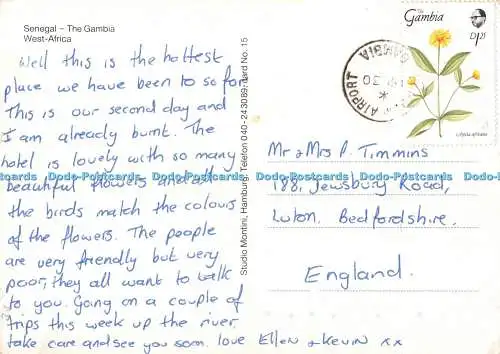 Senegal – The Gambia
West-Africa
Well this is the hottest
place we have been to so far
This is our second day and
I am already burnt. The
hotel is lovely with so many
beautiful flowers and all
the birds match the colours
of the flowers. The people
are very friendly but very
poor, they all want to talk
to you. Going on a couple of
trips this week up the river.
take care and see you soon. love Ellen & Kevin xx
Studio Montini, Hamburg, Telefon 040-24 30 89, Card No. 15
The
Gambia
D1.25
AIRPORT
GAMBIA
Mr & Mrs P. Timmins
188, Jewsbury Road,
Luton. Bedfordshire.
England.
Postcards Dodo-Postcards Dodo-Postcards Dodo-Postcards